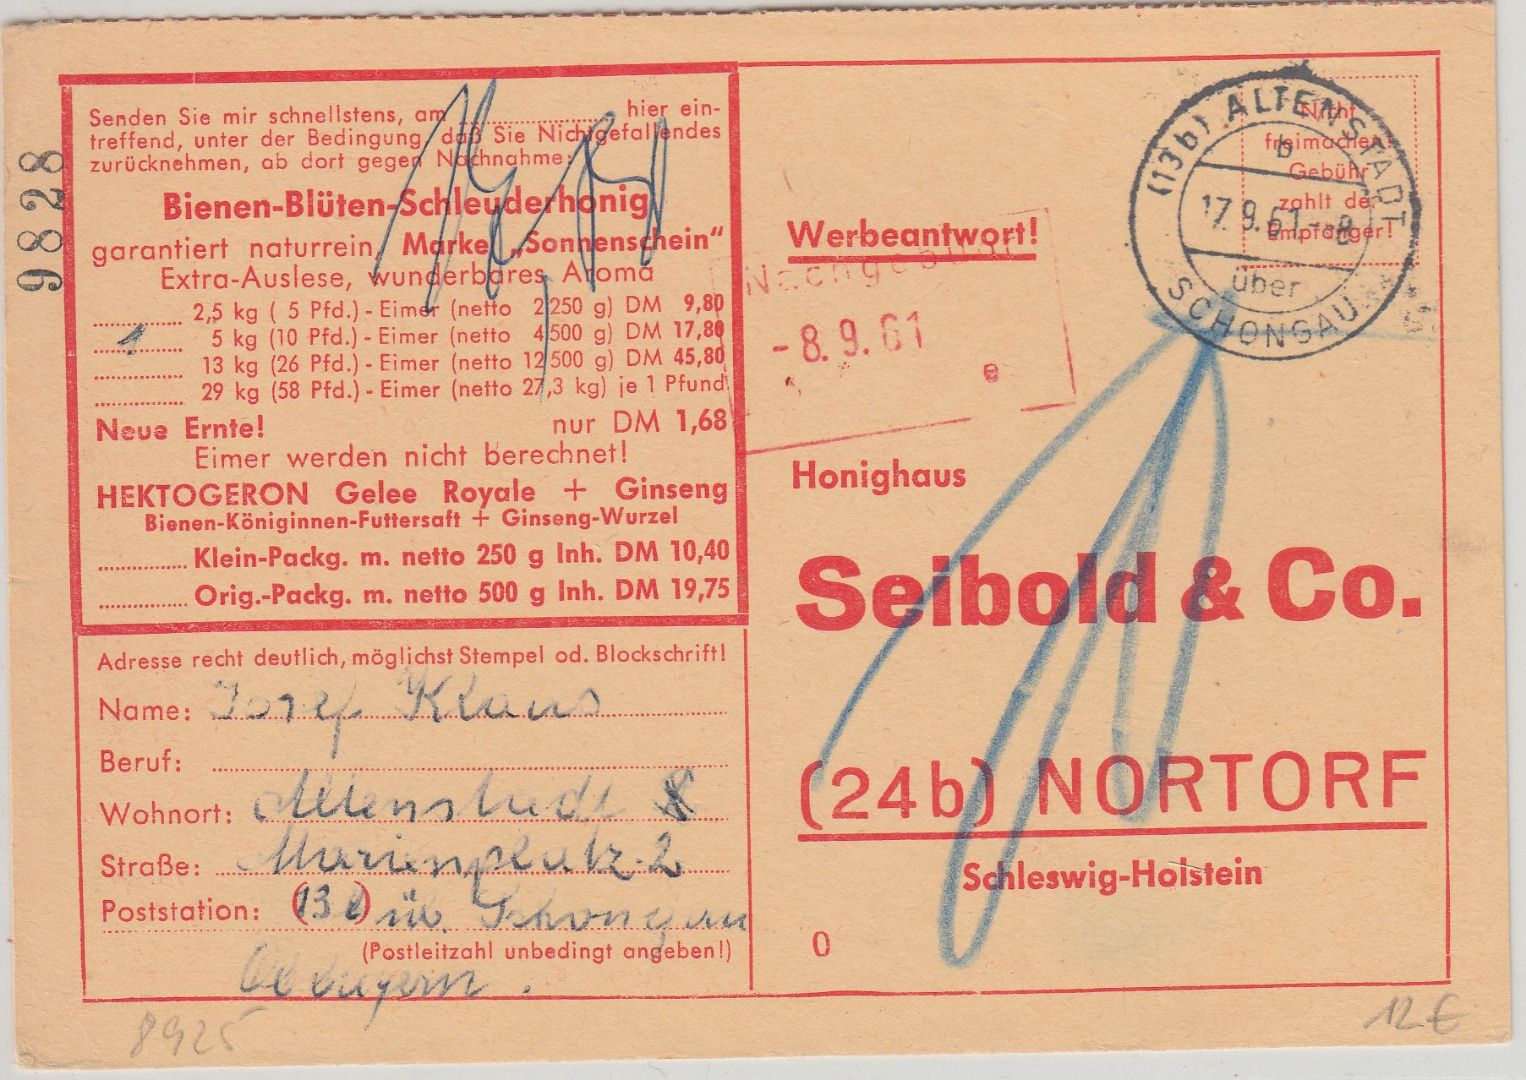 9828
Senden Sie mir schnellstens, am .................... hier ein-
treffend, unter der Bedingung, daß Sie Nichtgefallendes
zurücknehmen, ab dort gegen Nachnahme:
Bienen-Blüten-Schleuderhonig
garantiert naturrein, Marke „Sonnenschein“
Extra-Auslese, wunderbares Aroma
............ 2,5 kg ( 5 Pfd.) - Eimer (netto 2,250 g) DM 9,80
1 5 kg (10 Pfd.) - Eimer (netto 4,500 g) DM 17,80
............ 13 kg (26 Pfd.) - Eimer (netto 12,500 g) DM 45,80
............ 29 kg (58 Pfd.) - Eimer (netto 27,3 kg) je 1 Pfund
Neue Ernte! nur DM 1,68
Eimer werden nicht berechnet!
HEKTOGERON Gelee Royale + Ginseng
Bienen-Königinnen-Futtersaft + Ginseng-Wurzel
............ Klein-Packg. m. netto 250 g Inh. DM 10,40
............ Orig.-Packg. m. netto 500 g Inh. DM 19,75
Adresse recht deutlich, möglichst Stempel od. Blockschrift!
Name: Josef Klaus
Beruf:
Wohnort: Altenstadt
Straße: Marienplatz 2
Poststation: (13b) üb. Schongau
(Postleitzahl unbedingt angeben!)
Obbayern.
8925
Werbeantwort!
Nachgebühr
-8.9.61
e
Nicht
freimachen!
Gebühr
zahlt der
Empfänger!
(13b) ALTENSTADT
b
17.9.61.-8
über
SCHONGAU
Honighaus
Seibold & Co.
(24b) NORTORF
Schleswig-Holstein
0
12 €